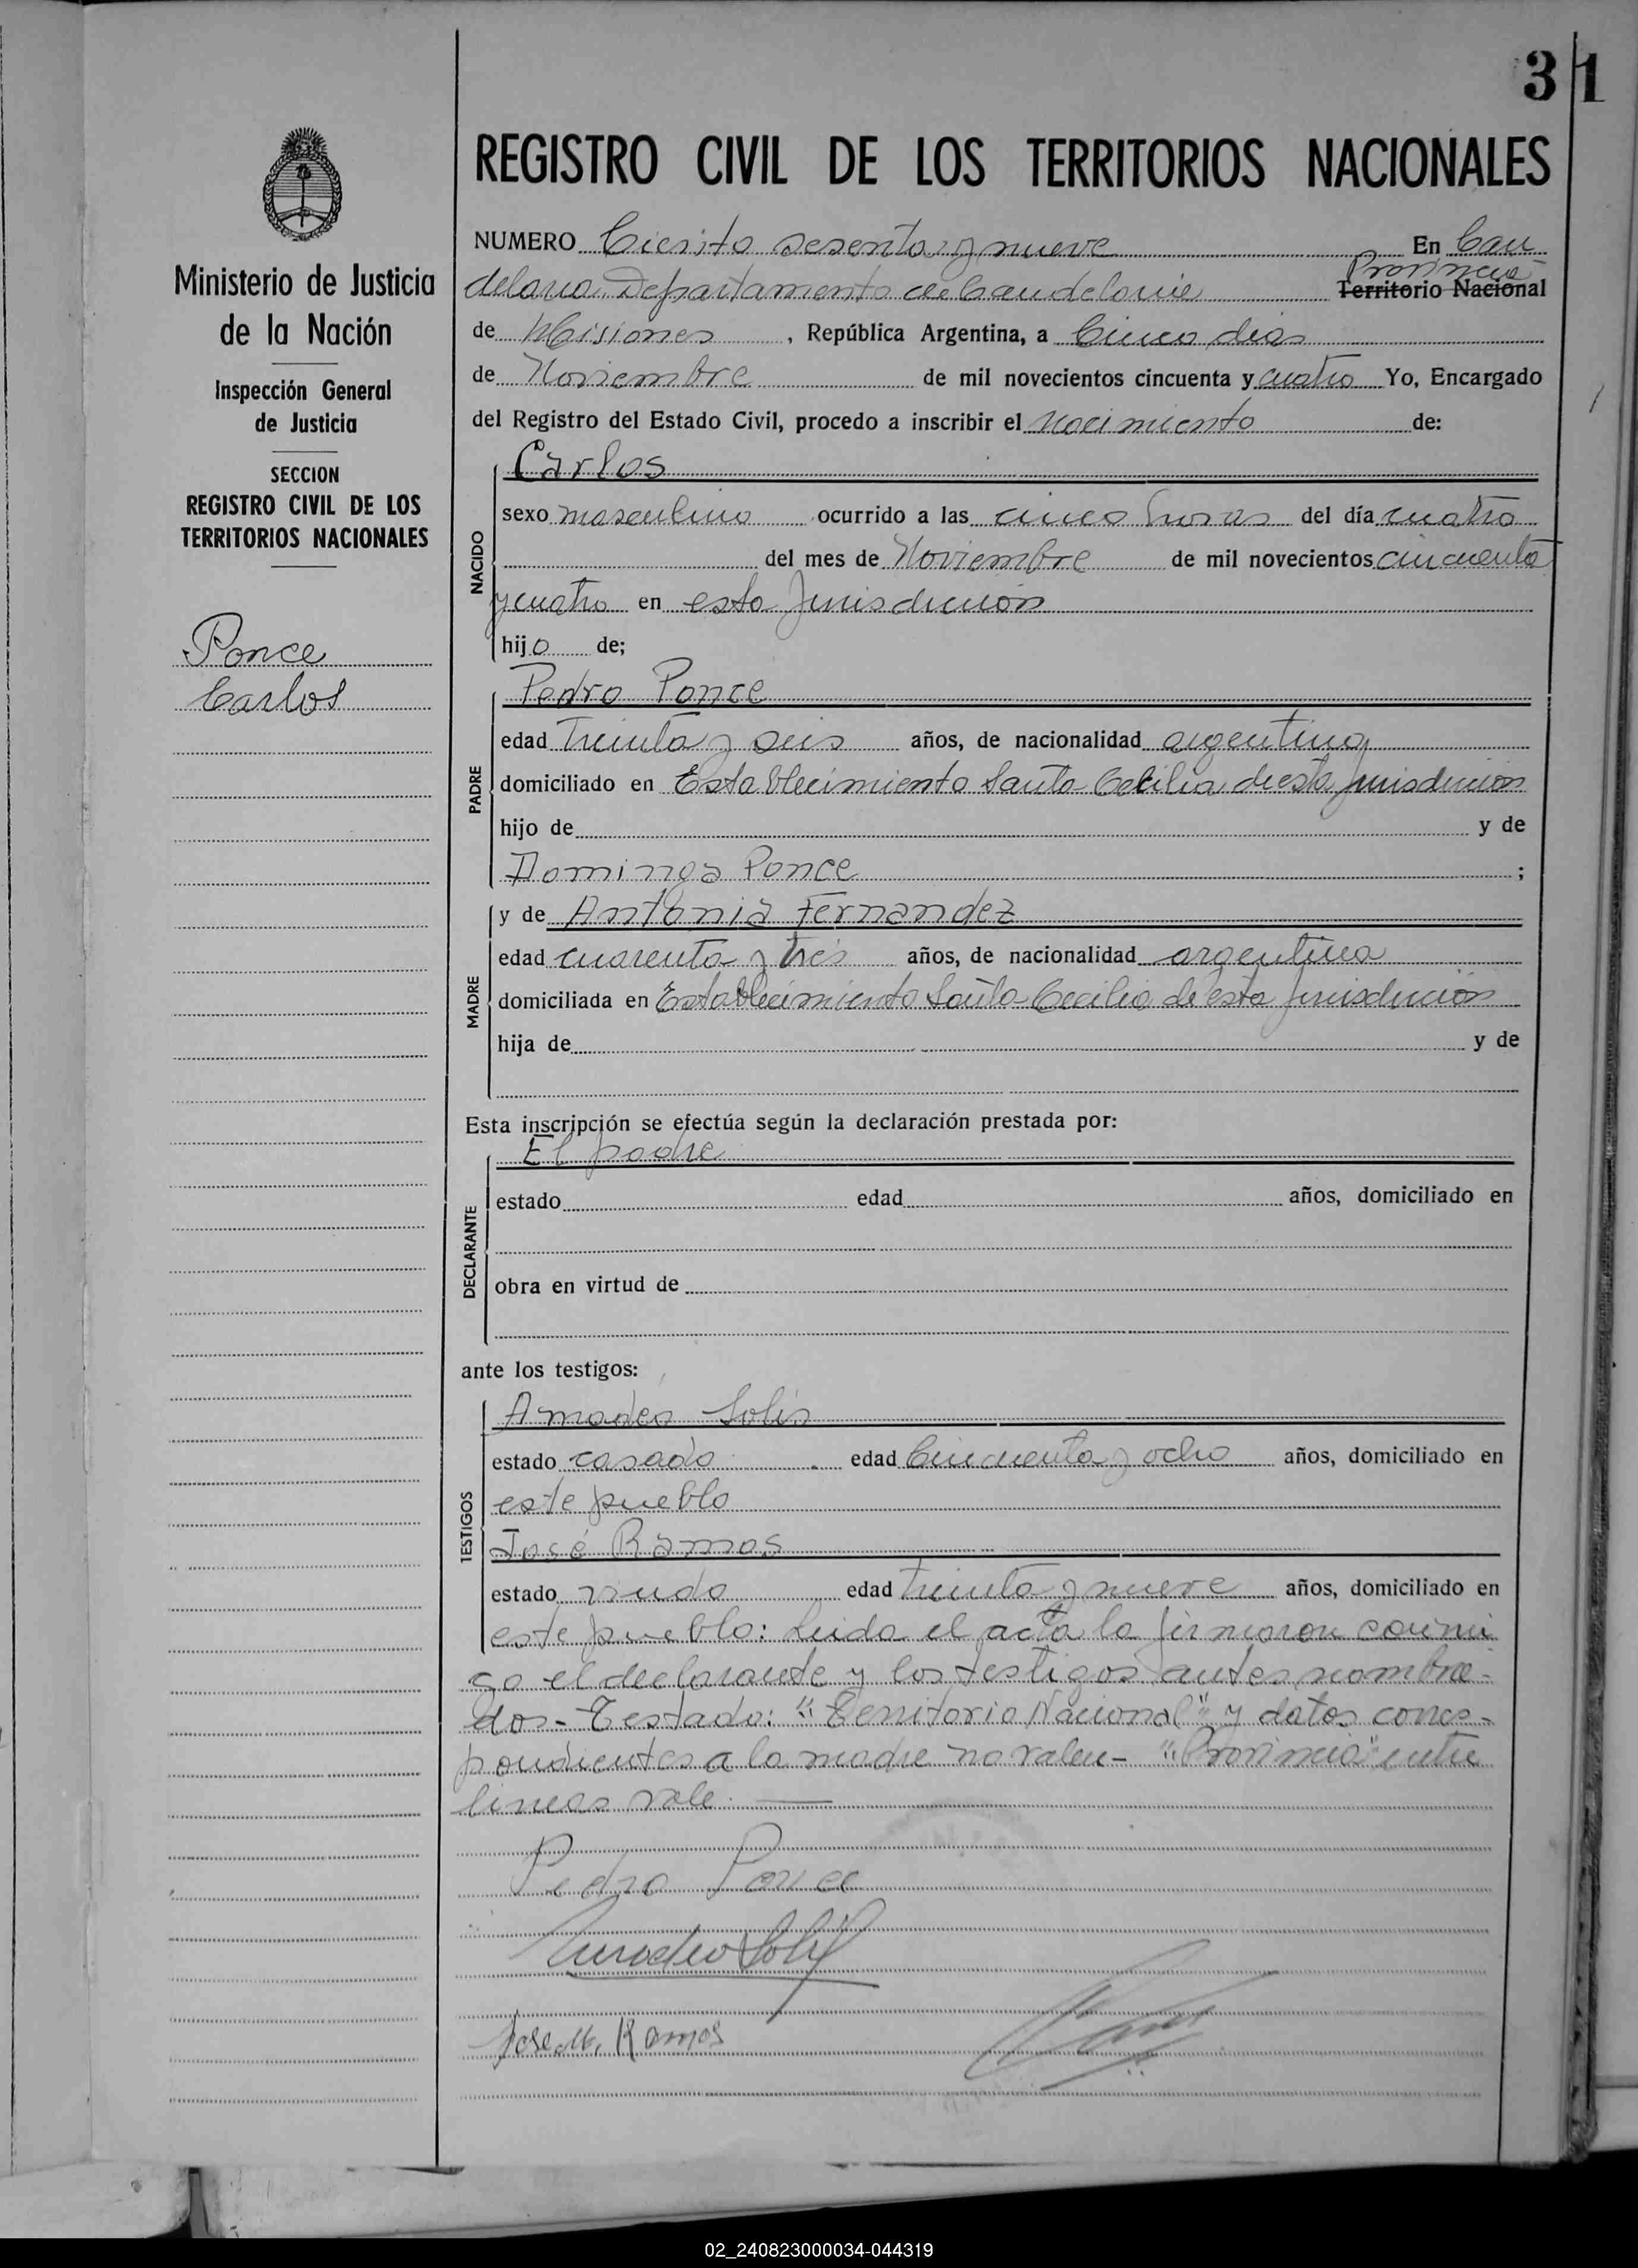 31
REGISTRO CIVIL DE LOS TERRITORIOS NACIONALES
Ministerio de Justicia
de la Nación
Inspección General
de Justicia
SECCION
REGISTRO CIVIL DE LOS
TERRITORIOS NACIONALES
Ponce
Carlos
NUMERO Ciento sesenta y nueve En Can
Provincia
delaria Departamento de Candelaria Territorio Nacional
de Misiones, República Argentina, a Cinco dias
de Noviembre de mil novecientos cincuenta y cuatro Yo, Encargado
del Registro del Estado Civil, procedo a inscribir el nacimiento de:
NACIDO
Carlos
sexo masculino ocurrido a las cinco horas del día cuatro
del mes de Noviembre de mil novecientos cincuenta
y cuatro en esta Jurisdicción
hijo de;
PADRE
Pedro Ponce
edad treinta y seis años, de nacionalidad argentina
domiciliado en Establecimiento Santa Cecilia de esta jurisdiccion
hijo de y de
Dominga Ponce ;
MADRE
y de Antonia Fernandez
edad cuarenta y tres años, de nacionalidad argentina
domiciliada en Establecimiento Santa Cecilia de esta jurisdiccion
hija de y de
Esta inscripción se efectúa según la declaración prestada por:
DECLARANTE
El padre
estado edad años, domiciliado en
obra en virtud de
ante los testigos:
TESTIGOS
Amadeo Solis
estado casado edad Cincuenta y ocho años, domiciliado en
este pueblo
José Ramos
estado viudo edad treinta y nueve años, domiciliado en
este pueblo: Leida el acta la firmaron conmi
go el declarante y los testigos antes nombra-
dos- Testado: "Territorio Nacional" y datos corres-
pondientes a la madre no valen- "Provincia" entre
lineas vale.
Pedro Ponce
Amadeo Solis
Jose M. Ramos
02_240823000034-044319